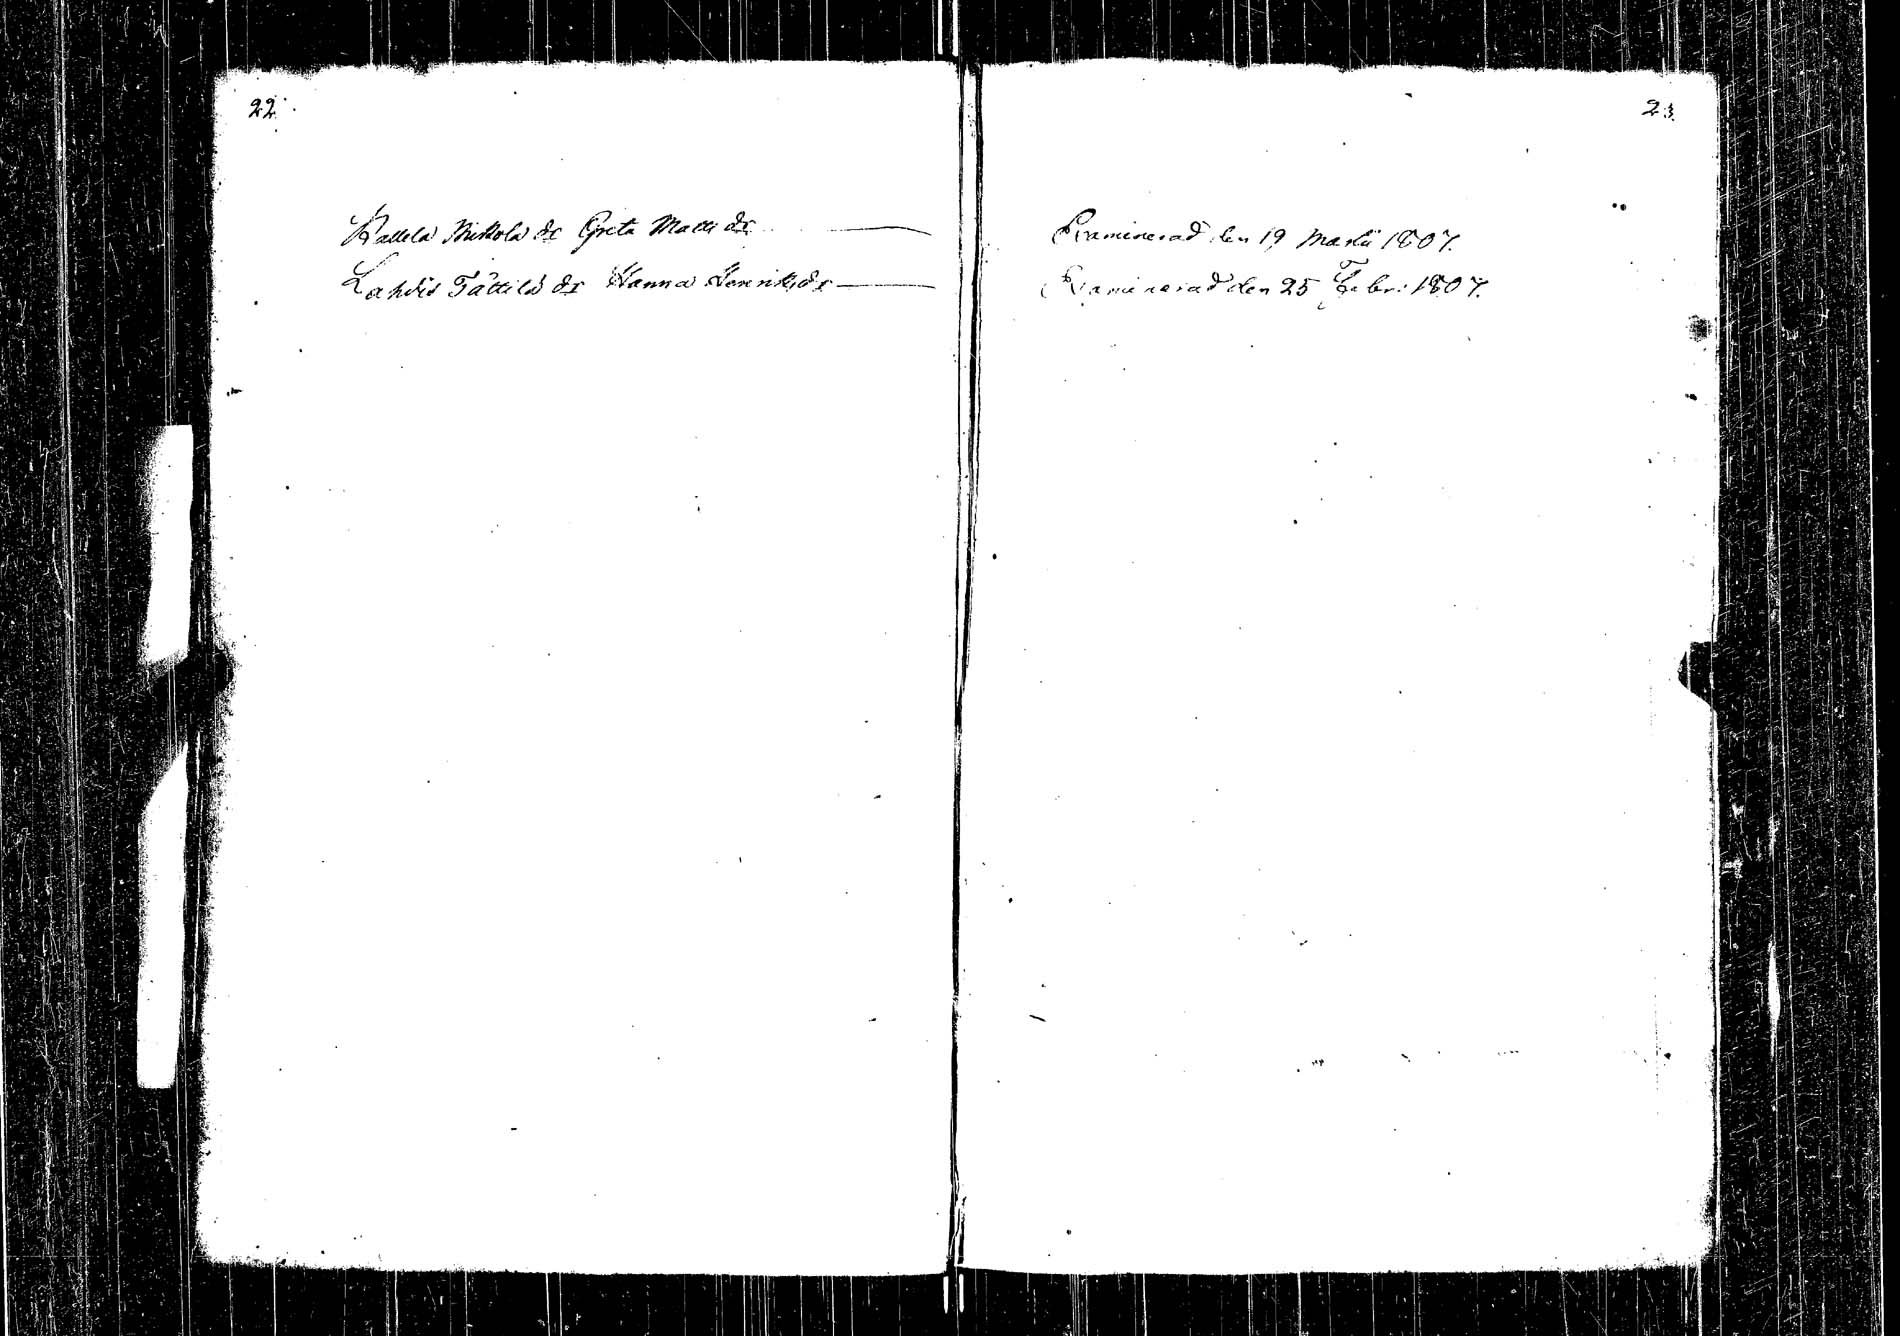 22.
Kallela Mikkola dr Greta Matts dr
Lahdis Tättilä dr Hanna Henriks dr
23.
Examinerad den 19 Martii 1807.
Examinerad den 25 Febr: 1807.